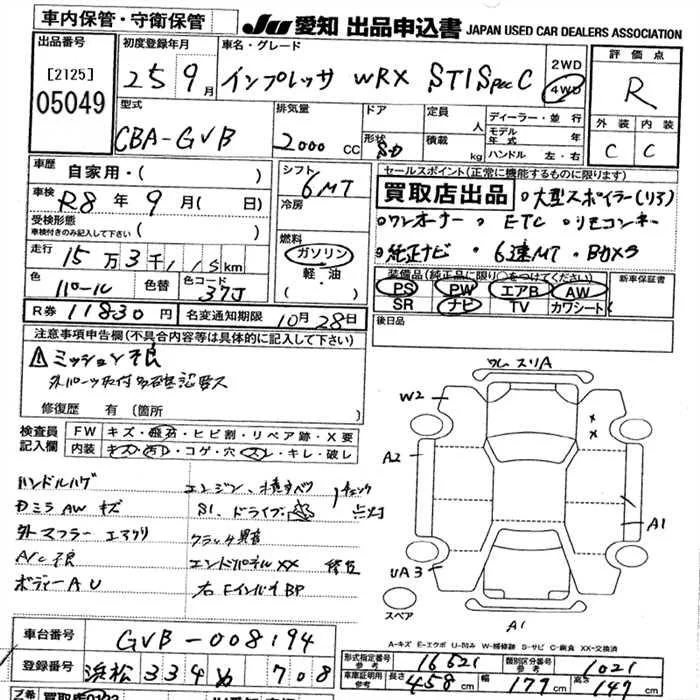 車内保管・守衛保管 JU 愛知 出品申込書 JAPAN USED CAR DEALERS ASSOCIATION
出品番号 [2125] 05049
初度登録年月 25 9月
車名・グレード インプレッサ WRX STI Spec C
2WD 4WD
評価点 R
外装 内装
C C
型式 CBA-GVB
排気量 2000 CC
ドア 形状 SD
定員 人
積載 kg
ディーラー・並行
モデル年式 年
ハンドル 左・右
車歴 自家用・( )
車検 R8年 9月( 日)
受検形態
車検付きのみ記入して下さい ( )
走行 15万3千115km
色 パール 色替 色コード 37J
シフト 6MT
冷房
燃料 ガソリン・軽・油
セールスポイント(正常に機能するものに限る)
買取店出品 ○大型スポイラー(リア)
○ワンオーナー ○ETC ○リモコンキー
○純正ナビ ○6速MT ○Bカメラ
装備品(純正品に限り○をつけてください)
PS PW エアB AW
SR ナビ TV カワシート
新車保証書
後日品
R券 11830円 名変通知期限 10月28日
注意事項申告欄(不具合内容等は具体的に記入して下さい)
⚠ミッション不良
修復歴 有 〔箇所
検査員記入欄
FW キズ・飛石・ヒビ割・リペア跡・X要
内装 キズ・汚れ・コゲ・穴・スレ・キレ・破レ
ハンドルハゲ
ドミラ AW キズ
外マフラー エアクリ
A/C不良
ボディー AU
エンジン、横すべり チェック点灯
SI、ドライブ
クラッチ異音
エンドパネル XX
右FインパイBP
ウレ スリA
W2
A2
A1
UA3
A1
スペア
A-キズ E-エクボ U-凹み W-補修跡 S-サビ C-腐食 XX-交換済
車台番号 GVB-008194
登録番号 浜松 334 ぬ 708
形式指定番号 参考 16621 類別区分番号 参考 1021
車庫証明用 参考 長さ 458cm 幅 179cm 高さ 147cm